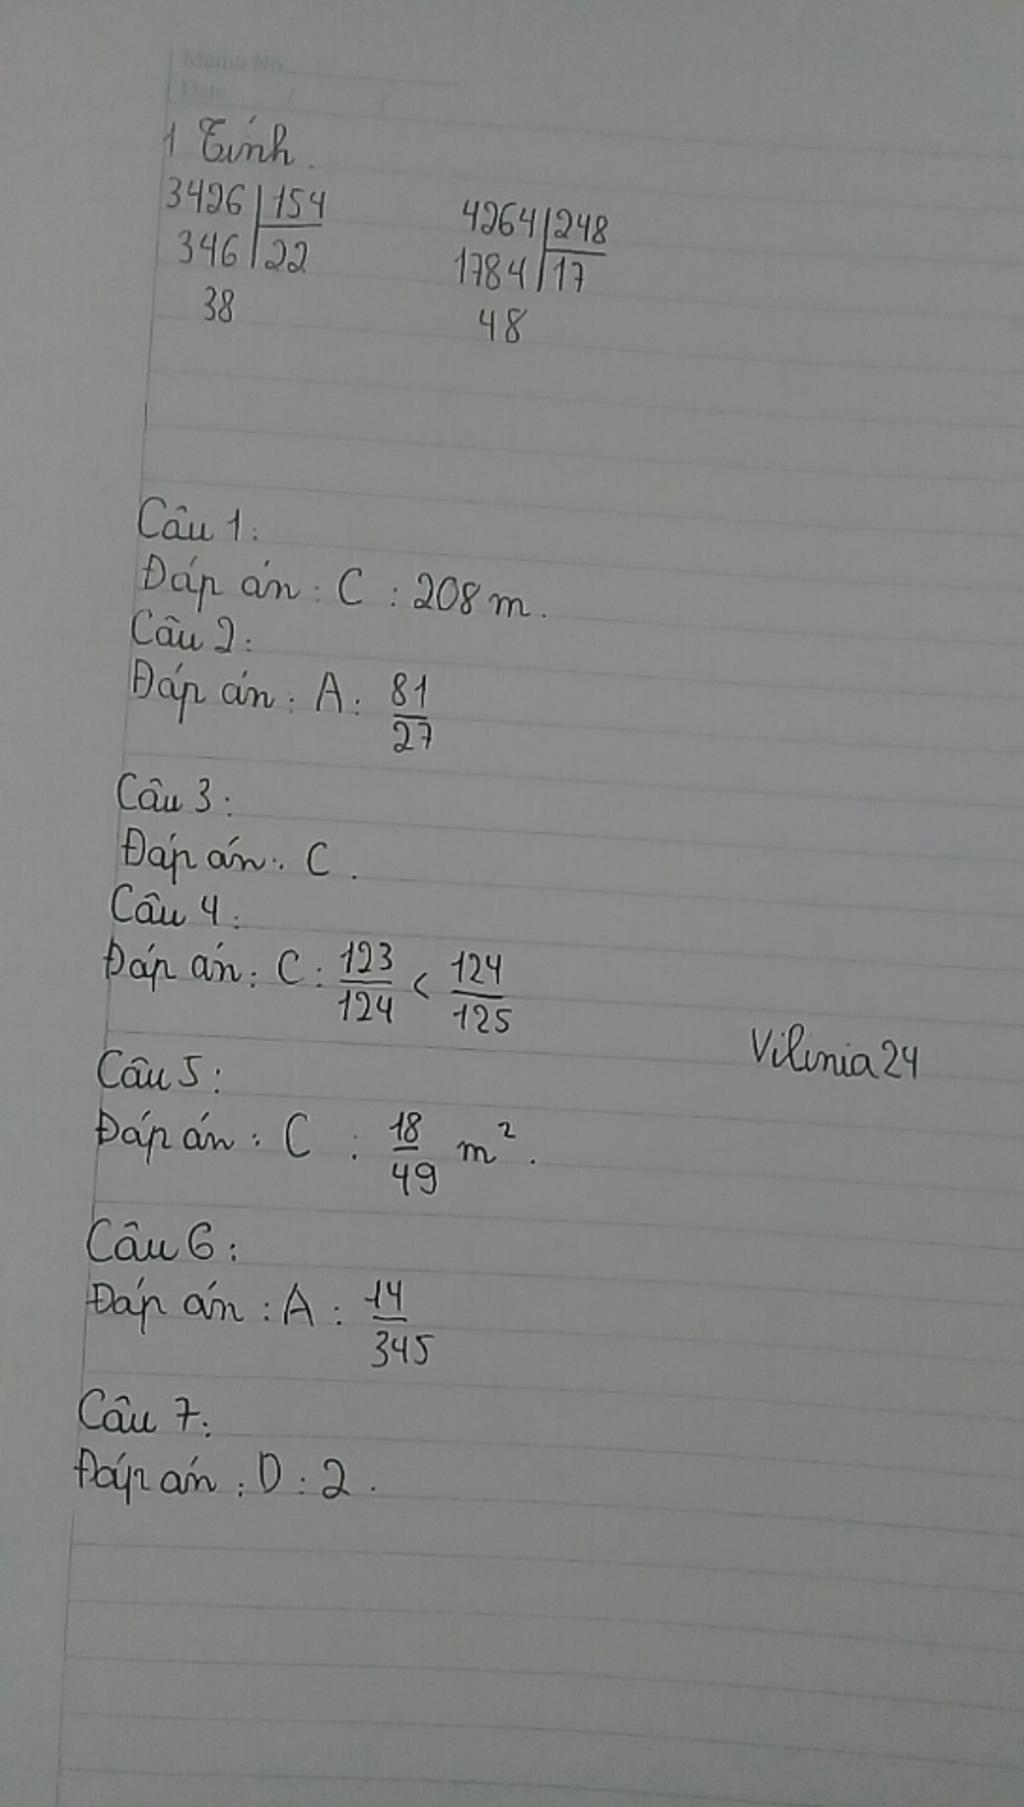 Memo No.
Date / /
1 Tính.
3426 | 154
346 | 22
38
4264 | 248
1784 | 17
48
Câu 1:
Đáp án: C: 208m.
Câu 2:
Đáp án: A: 81/27
Câu 3:
Đáp án: C.
Câu 4:
Đáp án: C: 123/124 < 124/125
Vilinia24
Câu 5:
Đáp án: C: 18/49 m².
Câu 6:
Đáp án: A: 14/345
Câu 7:
Đáp án: D: 2.